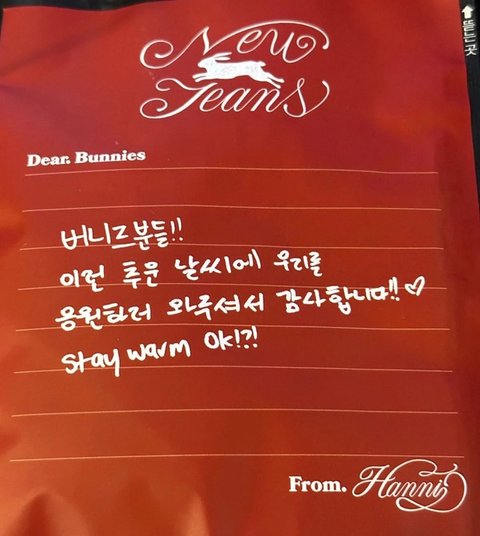 New
Jeans
뜯는 곳
Dear. Bunnies
버니즈분들!!
이런 추운 날씨에 우리를
응원하러 와주셔서 감사합니다!! ♡
Stay warm OK!?!
From. Hanni